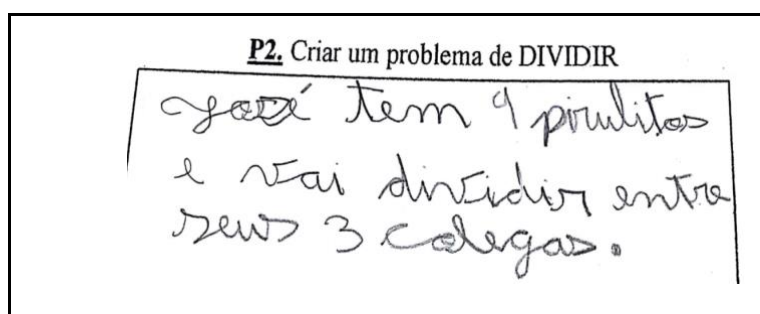 P2. Criar um problema de DIVIDIR
José tem 9 pirulitos
e vai dividir entre
seus 3 colegas.